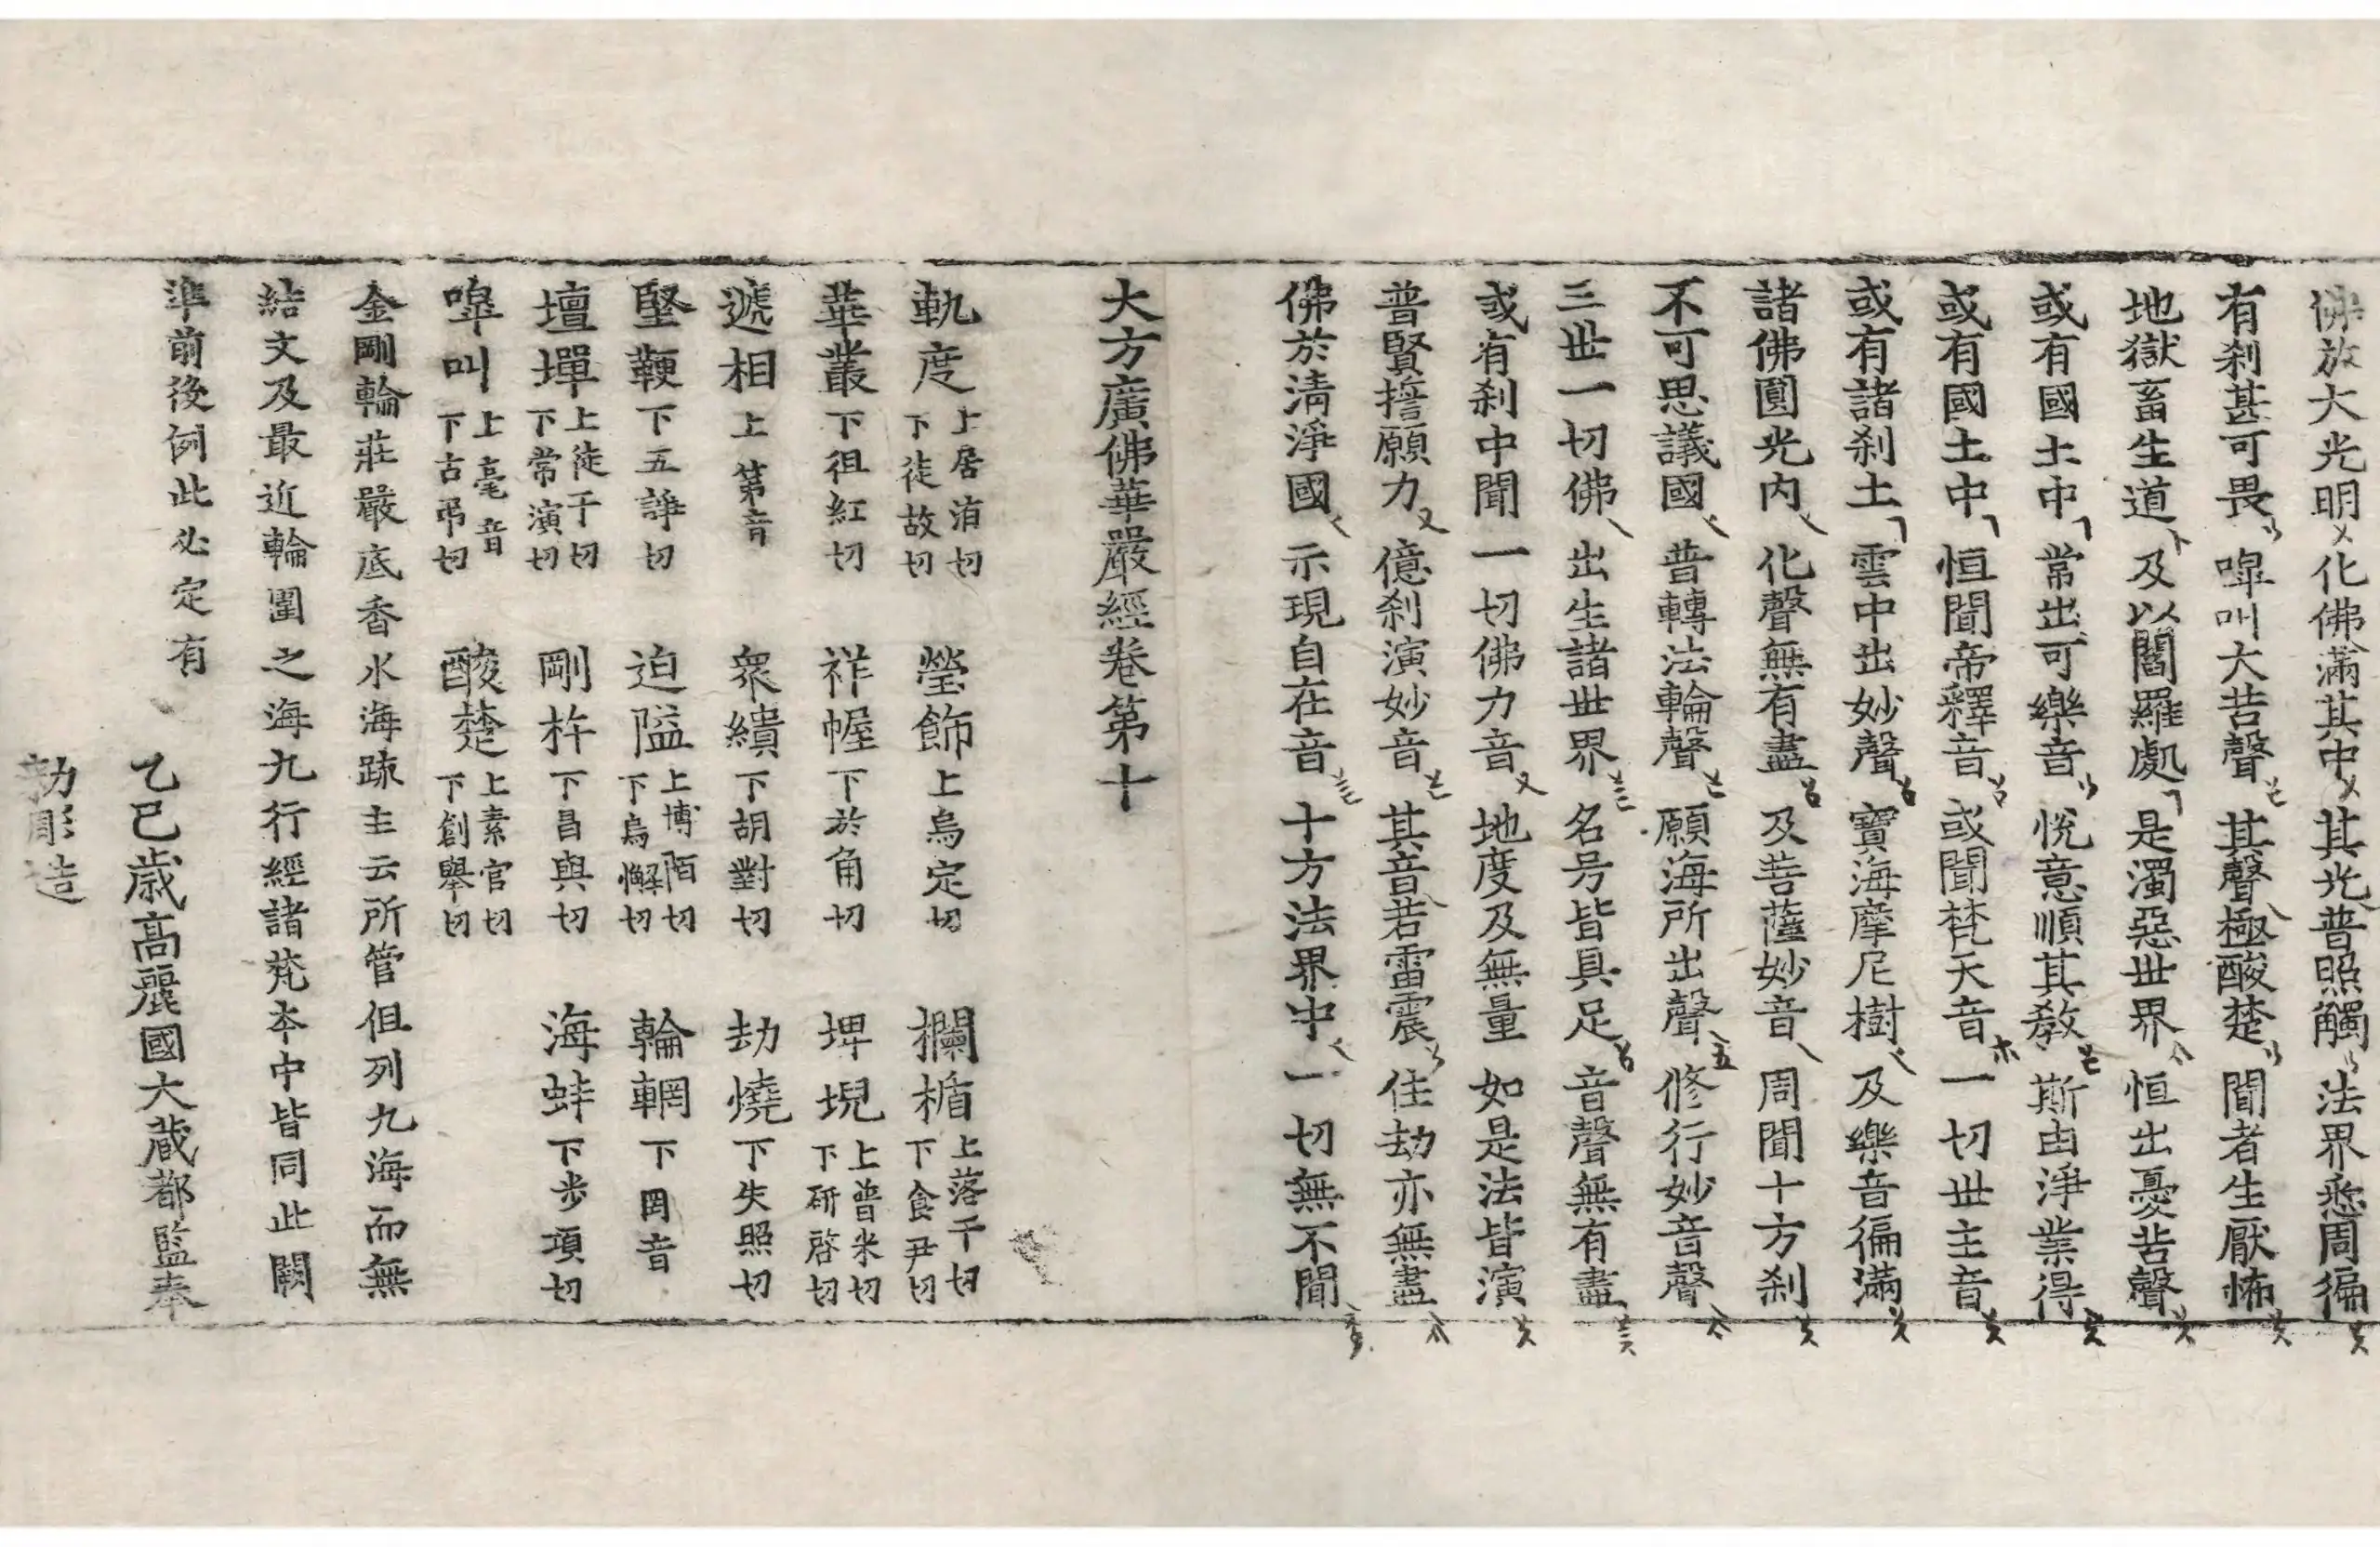 佛放大光明 化佛滿其中 其光普照觸 法界悉周徧
有刹甚可畏 嘷叫大苦聲 其聲極酸楚 聞者生厭怖
地獄畜生道 及以閻羅處 是濁惡世界 恒出憂苦聲
或有國土中 常出可樂音 悅意順其教 斯由淨業得
或有國土中 恒聞帝釋音 或聞梵天音 一切世主音
或有諸刹土 雲中出妙聲 寶海摩尼樹 及樂音徧滿
諸佛圓光內 化聲無有盡 及菩薩妙音 周聞十方刹
不可思議國 普轉法輪聲 願海所出聲 修行妙音聲
三世一切佛 出生諸世界 名号皆具足 音聲無有盡
或有刹中聞 一切佛力音 地度及無量 如是法皆演
普賢誓願力 億刹演妙音 其音若雷震 住劫亦無盡
佛於清淨國 示現自在音 十方法界中 一切無不聞
大方廣佛華嚴經卷第十
軌度 上居洧切 下徒故切 瑩飾 上烏定切 欄楯 上落干切 下食尹切
華叢 下徂紅切 祥幄 下於角切 埤堄 上普米切 下研啓切
遞相 上第音 衆繢 下胡對切 劫燒 下失照切
堅鞕 下五諍切 迫隘 上博陌切 下烏懈切 輪輞 下罔音
壇墠 上徒干切 下常演切 剛杵 下昌與切 海蚌 下步項切
嘷叫 上毫音 下古弔切 酸楚 上素官切 下創舉切
金剛輪莊嚴底香水海䟽主云所管但列九海而無
結文及最近輪圍之海九行經諸梵夲中皆同此闕
準前後例此必定有
乙巳歳高麗國大藏都監奉
勅彫造